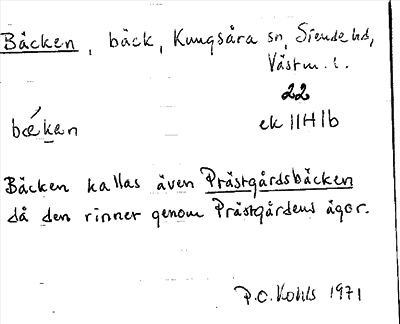 Bäcken, bäck, Kungsåra sn, Siende hd,
Västm. l.
22
bǽkan ek 11H1b
Bäcken kallas även Prästgårdsbäcken
då den rinner genom Prästgårdens ägor.
P.O. Kohls 1971